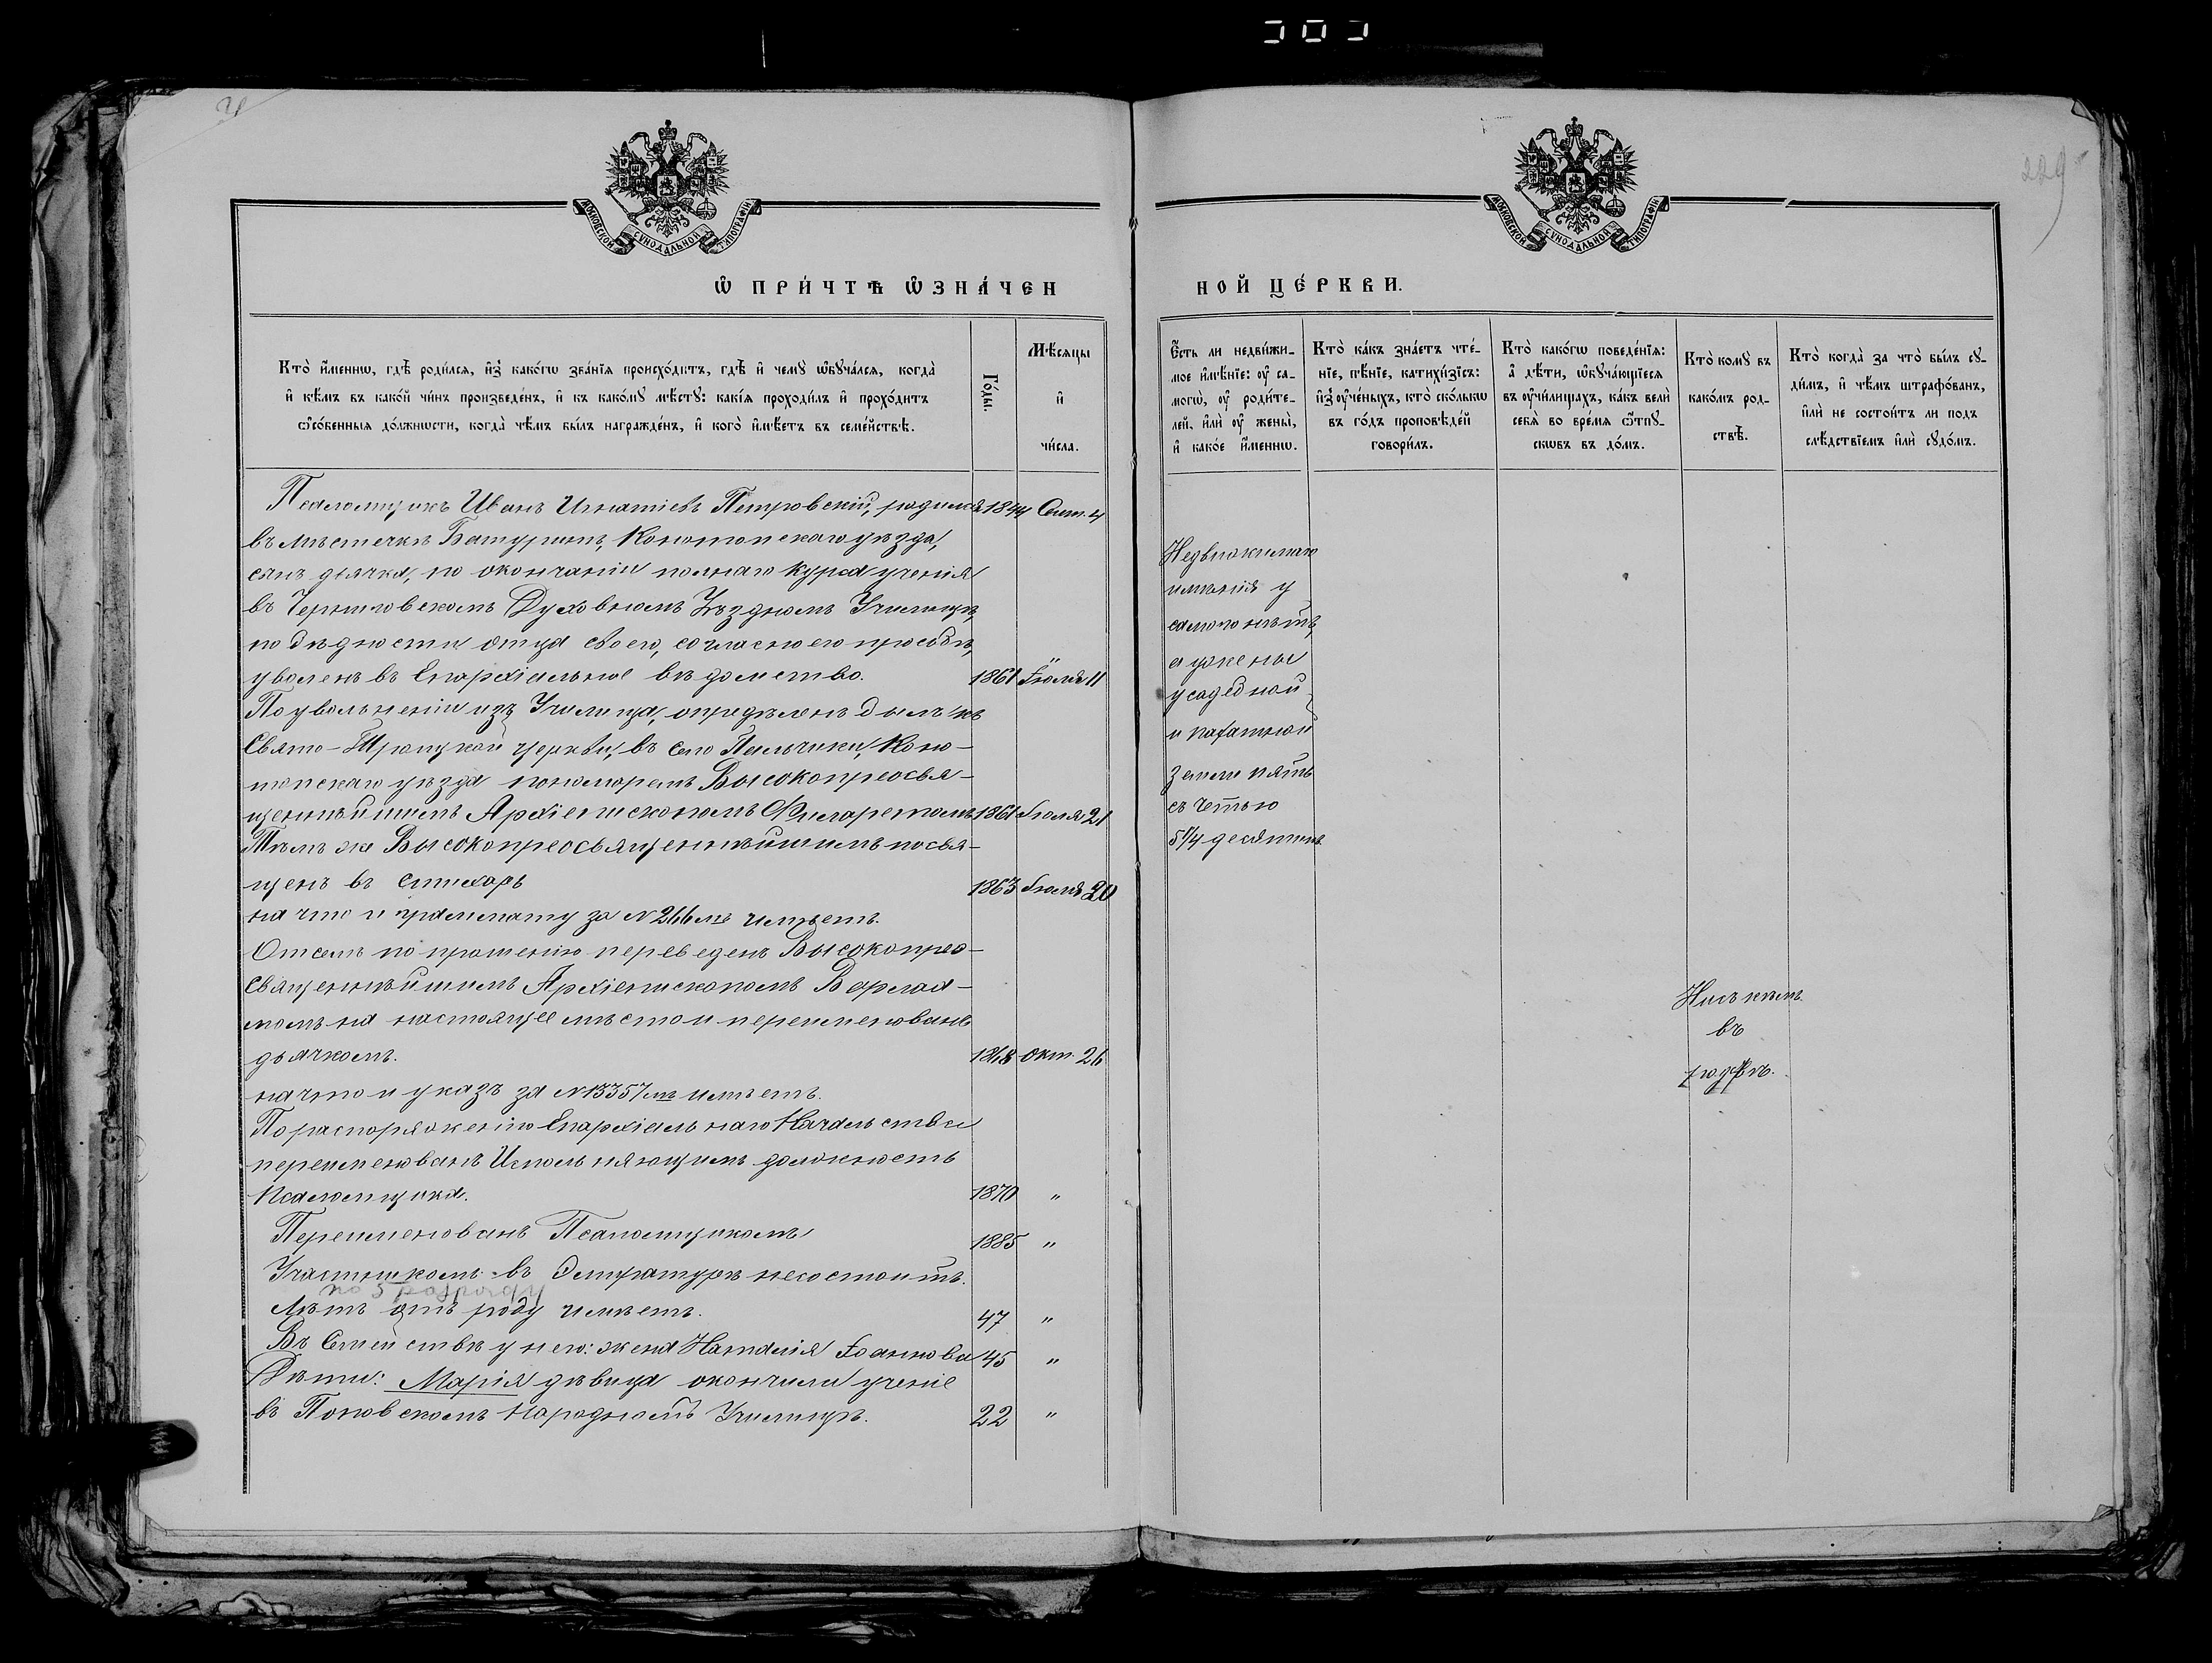 4
229
МОСКОВСКОЙ СѴНОДАЛЬНОЙ ТИПОГРАФІИ
МОСКОВСКОЙ СѴНОДАЛЬНОЙ ТИПОГРАФІИ
Ѡ ПРИ́ЧТѢ ѠЗНА́ЧЕН
НОЙ ЦЕ́РКВИ.
Кто̀ и҆́менно, гдѣ̀ роди́лся, и҆з̾ како́гѡ зва́нїѧ происхо́дитъ, гдѣ̀ и҆ чемꙋ̀ ѡ҆бꙋча́лсѧ, когда̀
и҆ кѣ́мъ въ како́й чи́нъ произведе́нъ, и҆ къ како́мꙋ мѣ́стꙋ: какі̑ѧ проходи́лъ и҆ прохо́дитъ
ѻ҆со́бенныѧ до́лжнѡсти, когда̀ чѣ́мъ бы́лъ награжде́нъ, и҆ кого̀ и҆мѣ́етъ въ семе́йствѣ.
Го́ды.
Мѣ́сѧцы
и҆
чи́сла.
Є҆́сть ли недви́жи-
мое и҆мѣ́нїе: ᲂу҆ са-
могѡ̀, ᲂу҆ роди́те-
лей, и҆лѝ ᲂу҆ жены̀,
и҆ како́е и҆́меннѡ.
Кто̀ ка́къ зна́етъ чте́-
нїе, пѣ́нїе, катихи́зїсъ:
и҆з̾ ᲂу҆че́ныхъ, кто̀ ско́лькѡ
въ го́дъ проповѣ́дей
говори́лъ.
Кто̀ како́гѡ поведе́нїѧ:
а҆ дѣ́ти, ѡ҆бꙋча́ющїесѧ
въ ᲂу҆чи́лищахъ, ка́къ велѝ
себѧ̀ во вре́мѧ ѿпꙋ-
скѡвъ въ до́мъ.
Кто̀ комꙋ̀ въ
како́мъ род-
ствѣ̀.
Кто̀ когда̀ за что̀ бы́лъ сꙋ-
ди́мъ, и҆ чѣ́мъ штрафо́ванъ,
и҆лѝ не состои́тъ ли подъ
слѣ́дствїемъ и҆лѝ сꙋдо́мъ.
Псаломщикъ Иванъ Игнатіевъ Петровскій, родился 1844 Сент. 4
въ мѣстечкѣ Батуринѣ, Конотопскаго уѣзда,
сынъ дьячка, по окончаніи полнаго курса ученія
въ Черниговскомъ Духовномъ Уѣздномъ Училищѣ,
по бѣдности отца своего, согласно его прозьбѣ,
уволенъ въ Епархіальное вѣдомство. 1861 Іюля 11
По увольненіи изъ Училища, опредѣленъ былъ къ
Свято-Троицкой церкви, въ село Пальчики, Коно-
топскаго уѣзда пономаремъ Высокопреосвя-
щеннѣйшимъ Архіепископомъ Филаретомъ 1861 Іюля 21
Тѣмъ же Высокопреосвященнѣйшимъ посвя-
щенъ въ стихарь 1863 Іюля 20
на что и грамматту за № 266мъ имѣетъ.
Отсемъ по прошенію переведенъ Высокопрео-
священнѣйшимъ Архіепископомъ Варлаа-
момъ на настоящее мѣсто и переименованъ
дьячкомъ. 1868 Окт. 26
на что и указъ за № 13357мъ имѣетъ.
По распоряженію Епархіальнаго Начальства
переименованъ Исполняющимъ должность
Псаломщика. 1870 "
Переименованъ Псаломщикомъ 1885 "
Участникомъ въ Эмеритурѣ несостоитъ.
по 5 разряду
Лѣтъ отъ роду имѣетъ. 47 "
Въ Семействѣ у него: жена Наталія Іоаннова 45 "
Дѣти: Марія дѣвица окончила ученіе
въ Поповскомъ Народномъ Училищѣ. 22 "
Недвижимаго
имѣнія у
самого нѣтъ,
а у жены
усадебной
и пахатной
земли пять
съ четью
5 1/4 десятинъ
Нисъ кѣмъ
въ
родствѣ.